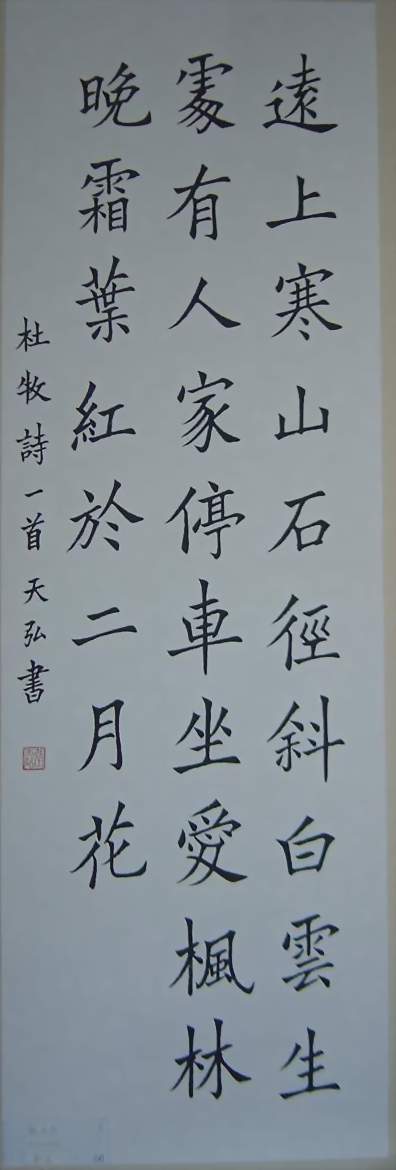 遠上寒山石徑斜白雲生
處有人家停車坐愛楓林
晚霜葉紅於二月花
杜牧詩一首天弘書